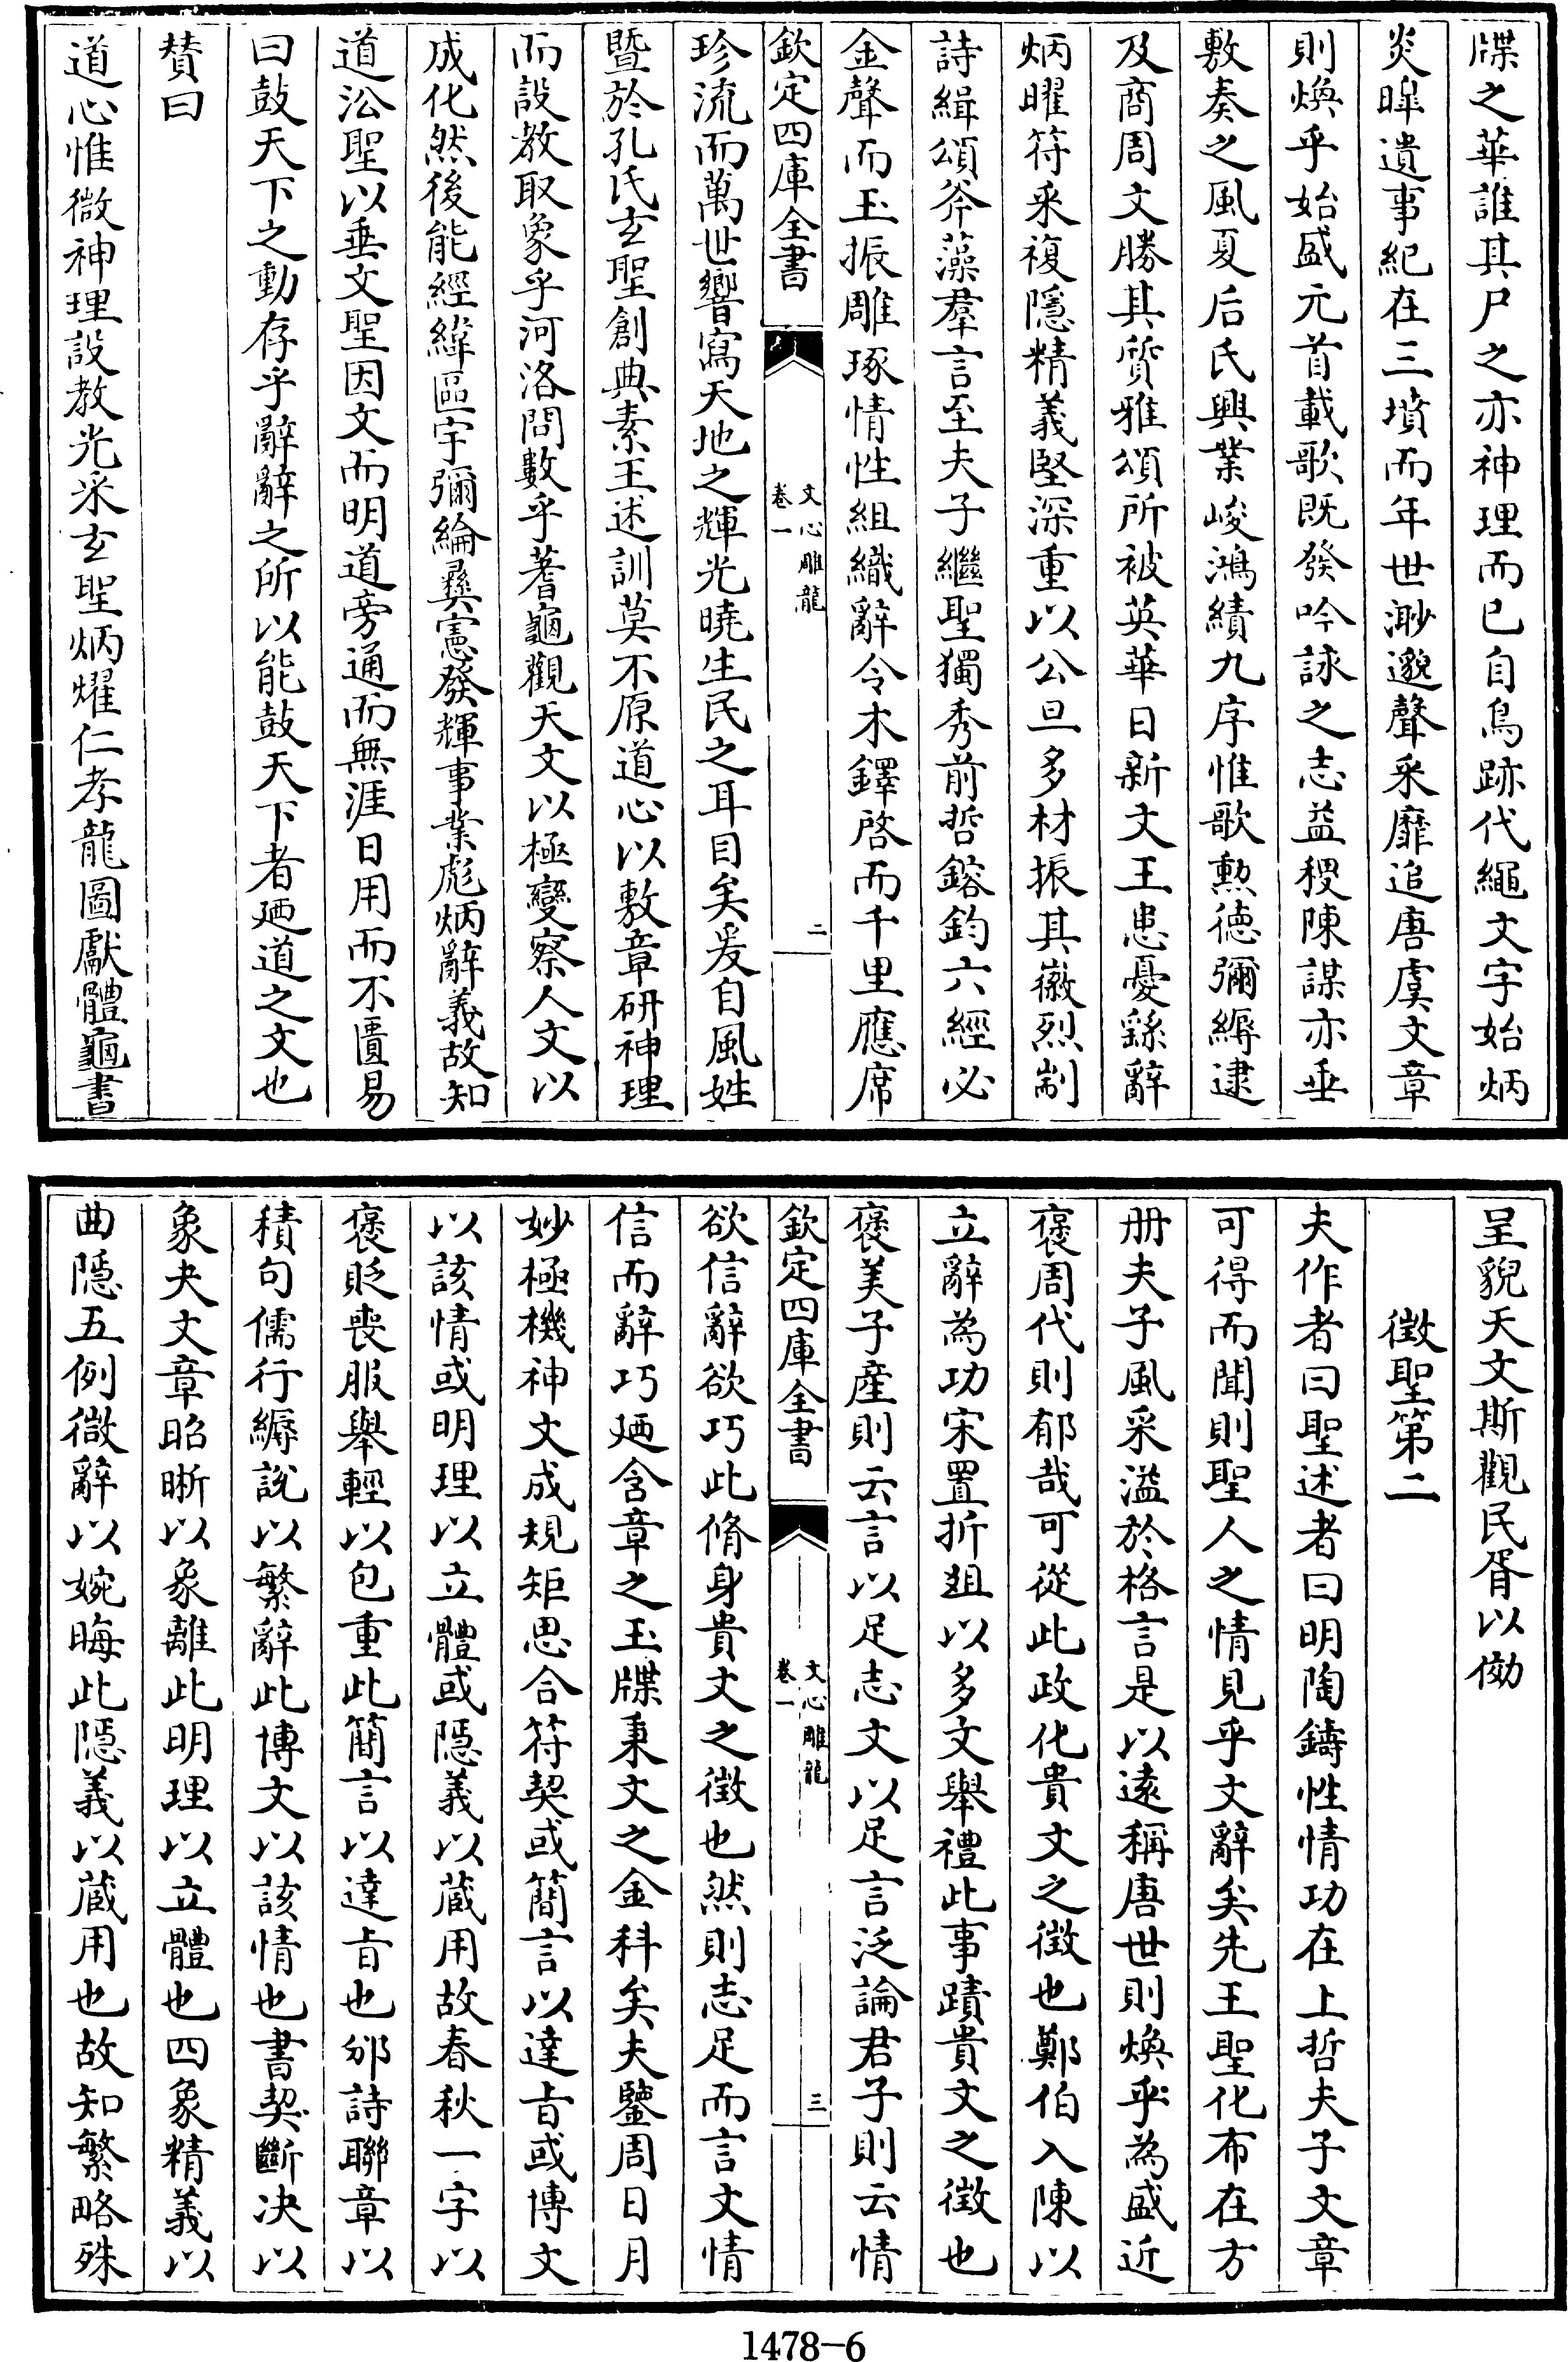 牒之華誰其尸之亦神理而已自鳥跡代繩文字始炳
炎皥遺事紀在三墳而年世渺邈聲采靡追唐虞文章
則煥乎始盛元首載歌既發吟詠之志益稷陳謀亦垂
敷奏之風夏后氏興業峻鴻績九序惟歌勲徳彌縟逮
及商周文勝其質雅頌所被英華日新文王患憂繇辭
炳曜符采複隱精義堅深重以公旦多材振其徽烈制
詩緝頌斧藻羣言至夫子繼聖獨秀前哲鎔鈞六經必
金聲而玉振雕琢情性組織辭令木鐸啓而千里應席
欽定四庫全書
文心雕龍
卷一
二
珍流而萬世響寫天地之輝光曉生民之耳目矣爰自風姓
暨於孔氏玄聖創典素王述訓莫不原道心以敷章研神理
而設教取象乎河洛問數乎蓍龜觀天文以極變察人文以
成化然後能經緯區宇彌綸彞憲發輝事業彪炳辭義故知
道㳂聖以垂文聖因文而明道旁通而無涯日用而不匱易
曰鼓天下之動存乎辭辭之所以能鼓天下者廼道之文也
賛曰
道心惟微神理設教光采玄聖炳燿仁孝龍圖獻體龜書
呈貌天文斯觀民胥以傚
徴聖第二
夫作者曰聖述者曰明陶鑄性情功在上哲夫子文章
可得而聞則聖人之情見乎文辭矣先王聖化布在方
册夫子風采溢於格言是以逺稱唐世則煥乎為盛近
褒周代則郁哉可從此政化貴文之徴也鄭伯入陳以
立辭為功宋置折俎以多文舉禮此事蹟貴文之徴也
褒美子産則云言以足志文以足言泛論君子則云情
欽定四庫全書
文心雕龍
卷一
三
欲信辭欲巧此脩身貴文之徴也然則志足而言文情
信而辭巧廼含章之玉牒秉文之金科矣夫鑒周日月
妙極機神文成規矩思合符契或簡言以達㫖或博文
以該情或明理以立體或隱義以蔵用故春秋一字以
褒貶喪服舉輕以包重此簡言以達㫖也邠詩聯章以
積句儒行縟說以繁辭此博文以該情也書契斷决以
象夬文章昭晰以象離此明理以立體也四象精義以
曲隱五例微辭以婉晦此隱義以蔵用也故知繁略殊
1478-6